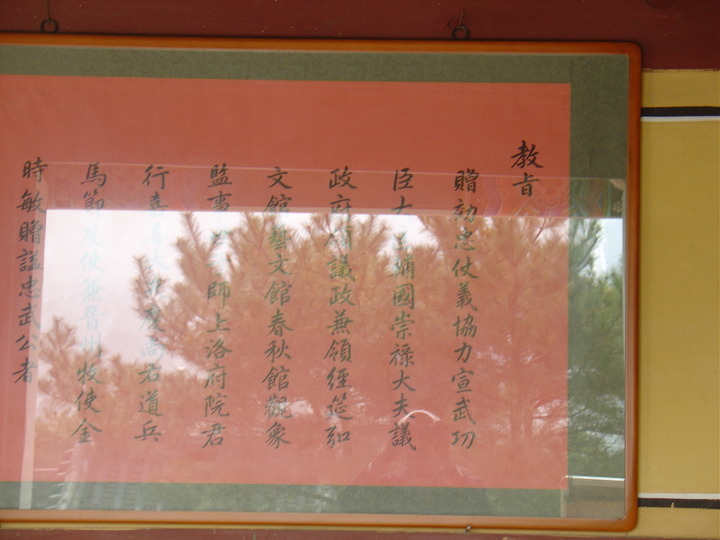 教旨
贈効忠仗義協力宣武功
臣大匡輔國崇祿大夫議
政府領議政兼領經筵弘
文館藝文館春秋館觀象
監事師上洛府院君
行嘉善大夫慶尚右道兵
馬節度使兼晉州牧使金
時敏贈諡忠武公者